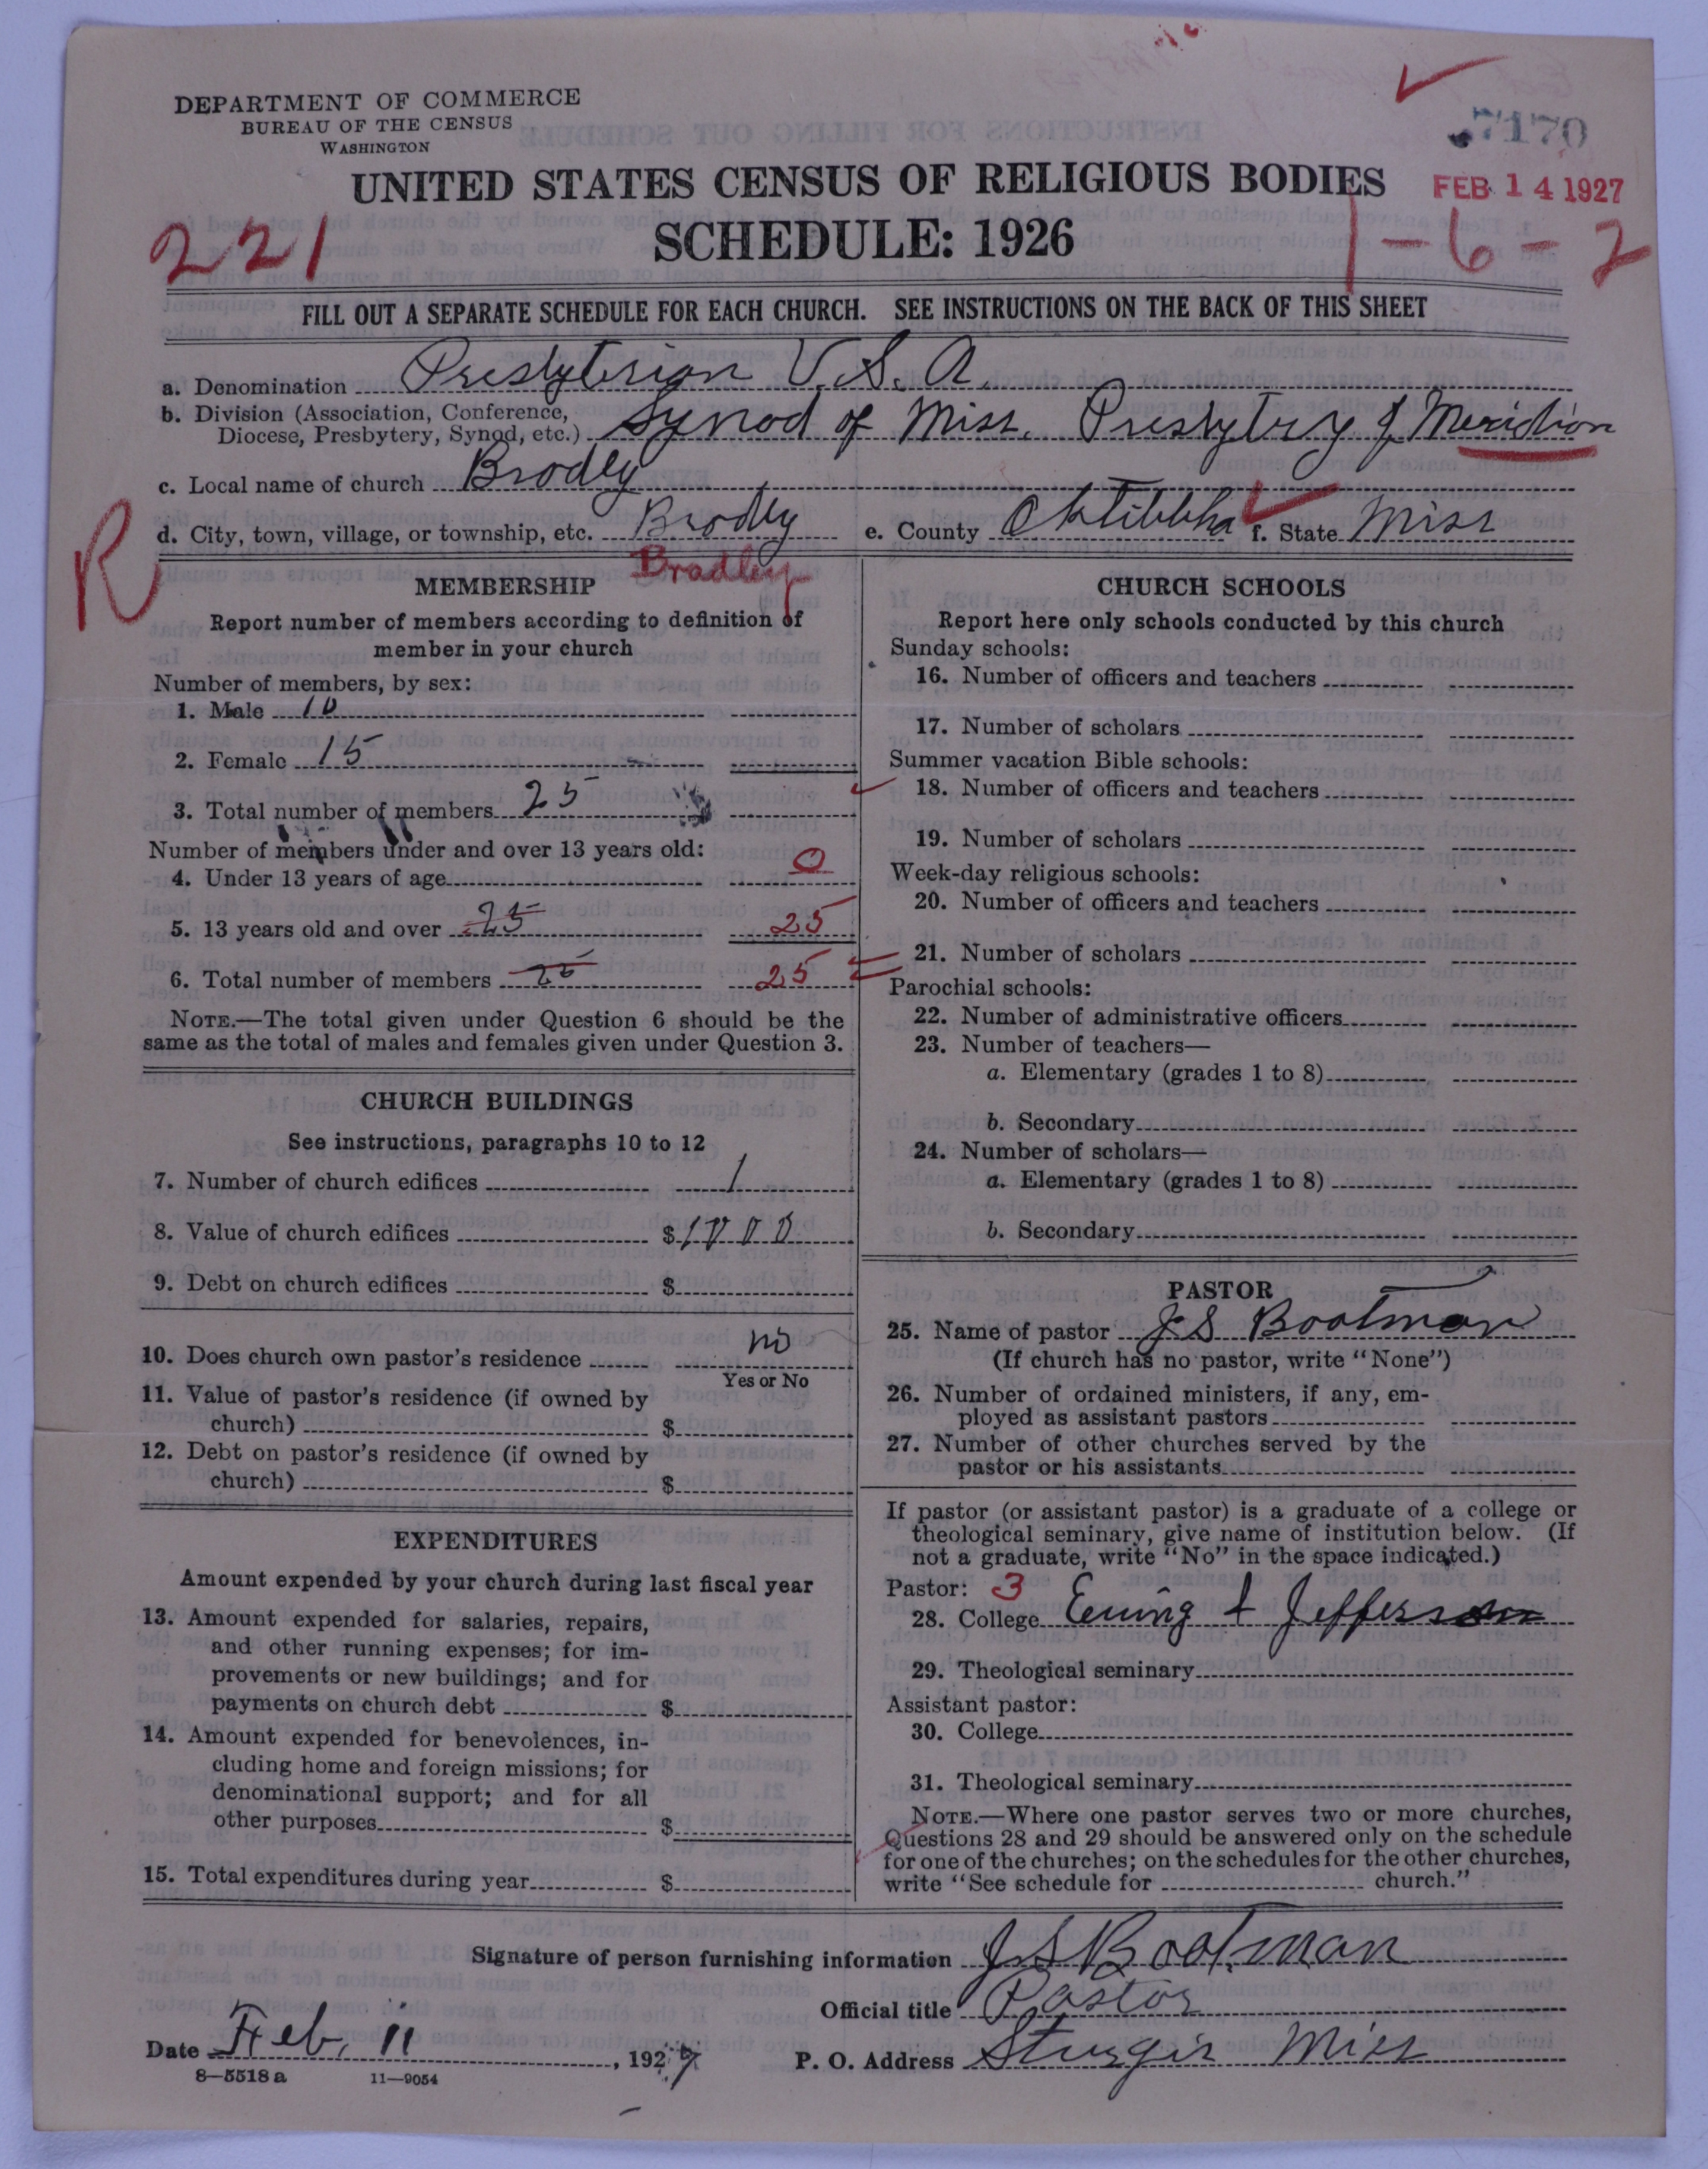 DEPARTMENT OF COMMERCE
BUREAU OF THE CENSUS
WASHINGTON
7170
UNITED STATES CENSUS OF RELIGIOUS BODIES
FEB 14 1927
SCHEDULE: 1926
221
1-6-2
FILL OUT A SEPARATE SCHEDULE FOR EACH CHURCH. SEE INSTRUCTIONS ON THE BACK OF THIS SHEET
a. Denomination Presbyterian U.S.A.
b. Division (Association, Conference,
Diocese, Presbytery, Synod, etc.) Synod of Miss. Presbytry of Meridian
c. Local name of church Bradley
d. City, town, village, or township, etc. Bradley e. County Oktibbha f. State Miss
R
Bradley
MEMBERSHIP
Report number of members according to definition of
member in your church
Number of members, by sex:
1. Male 10
2. Female 15
3. Total number of members 25
Number of members under and over 13 years old:
4. Under 13 years of age 0
5. 13 years old and over 25 25
6. Total number of members 25 25
NOTE.—The total given under Question 6 should be the
same as the total of males and females given under Question 3.
CHURCH BUILDINGS
See instructions, paragraphs 10 to 12
7. Number of church edifices 1
8. Value of church edifices $1000
9. Debt on church edifices $
10. Does church own pastor's residence no
Yes or No
11. Value of pastor's residence (if owned by
church) $
12. Debt on pastor's residence (if owned by
church) $
EXPENDITURES
Amount expended by your church during last fiscal year
13. Amount expended for salaries, repairs,
and other running expenses; for im-
provements or new buildings; and for
payments on church debt $
14. Amount expended for benevolences, in-
cluding home and foreign missions; for
denominational support; and for all
other purposes $
15. Total expenditures during year $
CHURCH SCHOOLS
Report here only schools conducted by this church
Sunday schools:
16. Number of officers and teachers
17. Number of scholars
Summer vacation Bible schools:
18. Number of officers and teachers
19. Number of scholars
Week-day religious schools:
20. Number of officers and teachers
21. Number of scholars
Parochial schools:
22. Number of administrative officers
23. Number of teachers—
a. Elementary (grades 1 to 8)
b. Secondary
24. Number of scholars—
a. Elementary (grades 1 to 8)
b. Secondary
PASTOR
25. Name of pastor J S Bootman
(If church has no pastor, write "None")
26. Number of ordained ministers, if any, em-
ployed as assistant pastors
27. Number of other churches served by the
pastor or his assistants
If pastor (or assistant pastor) is a graduate of a college or
theological seminary, give name of institution below. (If
not a graduate, write "No" in the space indicated.)
Pastor: 3
28. College Ewing & Jefferson
29. Theological seminary
Assistant pastor:
30. College
31. Theological seminary
NOTE.—Where one pastor serves two or more churches,
Questions 28 and 29 should be answered only on the schedule
for one of the churches; on the schedules for the other churches,
write "See schedule for church."
Signature of person furnishing information J S Bootman
Official title Pastor
Date Feb. 11, 1927 P. O. Address Sturgis Miss
8—5518 a 11—9054